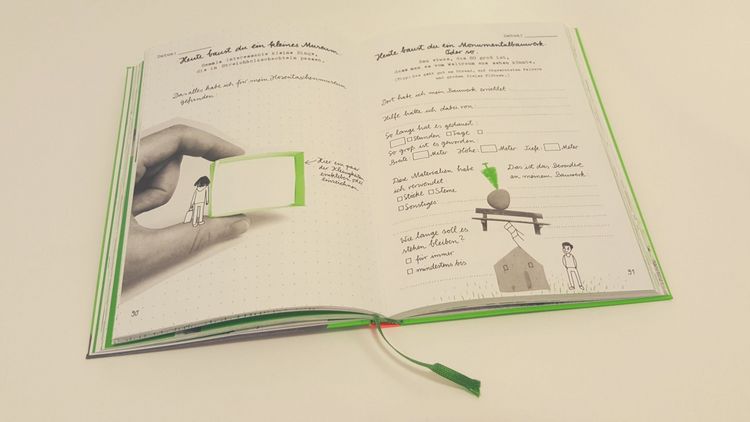 Datum:
Heute baust du ein kleines Museum.
Sammle interessante kleine Dinge,
die in Streichholzschachteln passen.
Das alles habe ich für mein Hosentaschenmuseum
gefunden:
Hier ein paar
der Kleinigkeiten
einkleben oder
einzeichnen
90
Datum:
Heute baust du ein Monumentalbauwerk.
Oder so.
Bau etwas, das so groß ist,
dass man es vom Weltraum aus sehen könnte.
(Tipp: Das geht gut am Strand, auf abgeernteten Feldern
und großen freien Flächen.)
Dort habe ich mein Bauwerk errichtet:
Hilfe hatte ich dabei von:
So lange hat es gedauert:
Stunden Tage
So groß ist es geworden:
Breite: Meter Höhe: Meter Tiefe: Meter
Diese Materialien habe
ich verwendet:
Stöcke Steine
Sonstiges:
Das ist das Besondere
an meinem Bauwerk:
Wie lange soll es
stehen bleiben?
für immer
mindestens bis
91